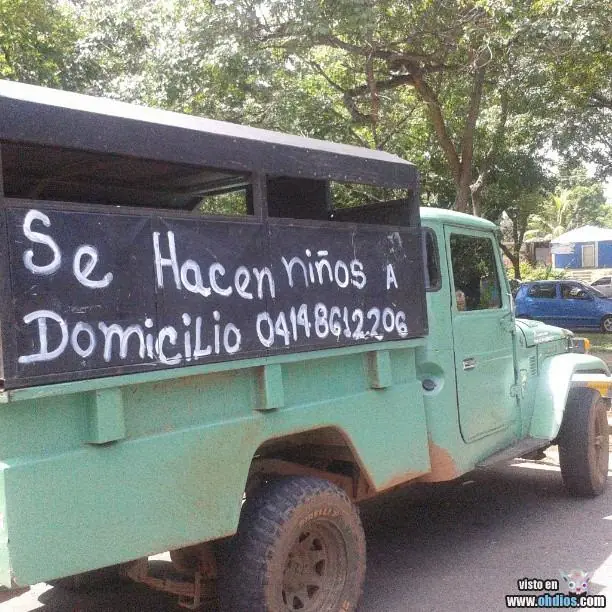 Se Hacen niños A
Domicilio 04148612206
visto en
www.ohdios.com